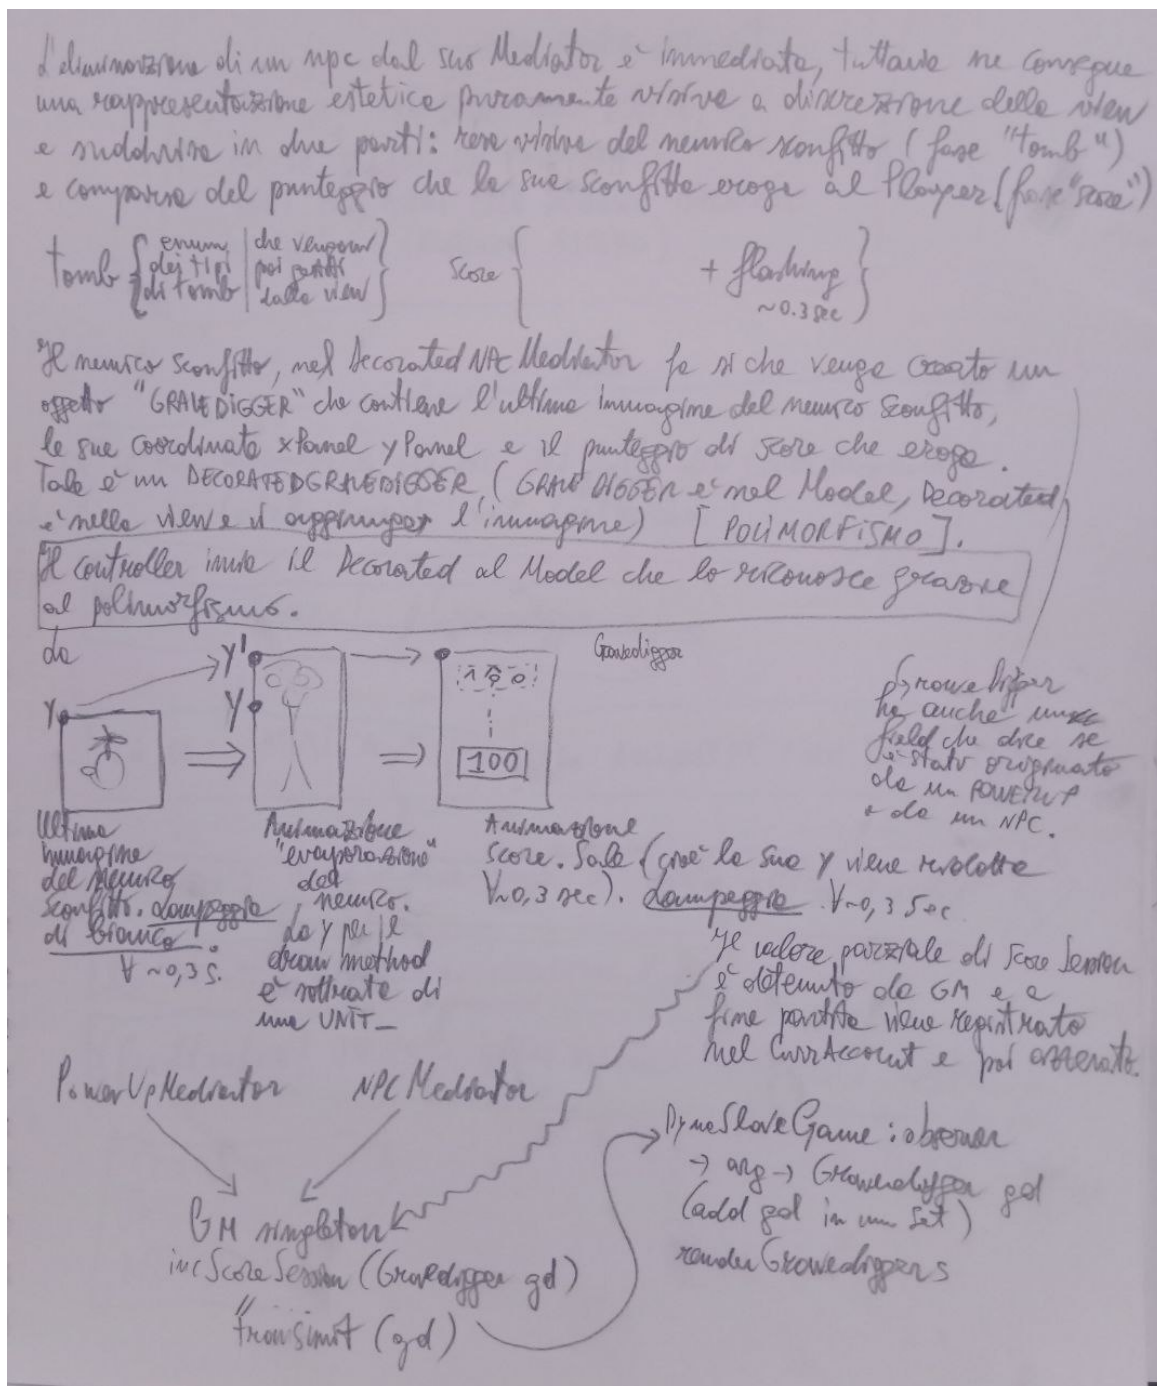 L'eliminazione di un npc dal suo Mediator è immediata, tuttavia ne consegue
una rappresentazione estetica puramente visiva a discrezione della view
e suddivisa in due parti: resa visiva del nemico sconfitto (fase "tomb")
e comparsa del punteggio che la sua sconfitta eroga al Player (fase "score")
tomb { enum dei tipi di tomb | che vengono poi gestiti dalla view }
score { + flashing ~0.3 sec }
Il nemico sconfitto, nel DecoratedNPCMediator fa sì che venga creato un
oggetto "GRAVEDIGGER" che contiene l'ultima immagine del nemico sconfitto,
le sue coordinate xPanel yPanel e il punteggio di score che eroga.
Tale è un DECORATEDGRAVEDIGGER, (GRAVEDIGGER è nel Model, Decorated
è nella view e vi aggiunge l'immagine) [POLIMORFISMO].
Il controller invia il Decorated al Model che lo riconosce grazie
al polimorfismo.
da
Gravedigger
y
y'
y
100
100
GraveDigger
ha anche un
field che dice se
è stato originato
da un POWERUP
o da un NPC.
Ultima
immagine
del nemico
sconfitto. Lampeggia
di bianco.
∀ ~0,3 s.
Animazione
"evaporazione"
del
nemico.
La y per il
draw method
è sottratta di
una UNIT_
Animazione
score. Sale (cioè la sua y viene ridotta
∀~0,3 sec). Lampeggia ∀~0,3 sec
Il valore parziale di score Session
è detenuto da GM e a
fine partita viene registrato
nel CurrAccount e poi azzerato.
PowerUpMediator
NPCMediator
GM singleton
incScoreSession (Gravedigger gd)
"
transmit (gd)
DynaSlaveGame : observer
→ arg → Gravedigger gd
(add gd in un Set)
renderGravediggers